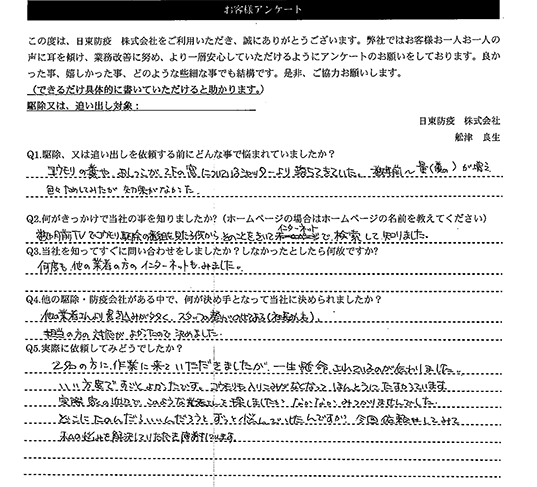 お客様アンケート
この度は、日東防疫 株式会社をご利用いただき、誠にありがとうございます。弊社ではお客様お一人お一人の
声に耳を傾け、業務改善に努め、より一層安心していただけるようにアンケートのお願いをしております。良か
った事、嬉しかった事、どのような些細な事でも結構です。是非、ご協力お願いします。
（できるだけ具体的に書いていただけると助かります。）
駆除又は、追い出し対象：
日東防疫 株式会社
舩津 良生
Q1.駆除、又は追い出しを依頼する前にどんな事で悩まれていましたか？
コウモリの糞や、おしっこが、2Fの窓についているシャッターより落ちてきていた。数年前〜量(糞の)が増え
色々ためしてみたが効果がなかった。
Q2.何がきっかけで当社の事を知りましたか？（ホームページの場合はホームページの名前を教えてください）
インターネット
数か月前TVでコウモリ駆除の番組を見た で検索して知りました。
Q3.当社を知ってすぐに問い合わせをしましたか？しなかったとしたら何故ですか？
何度も他の業者の方のインターネットもみました。
Q4.他の駆除・防疫会社がある中で、何が決め手となって当社に決められましたか？
他の業者さんより書き込みが多く、スタッフの
担当の方の対応がよかったので決めました。
Q5.実際に依頼してみどうでしたか？
2名の方に作業に来ていただきましたが、一生懸命 のが伝わりました。
いい方達ですごくよかったです。コウモリも入りこみがなくなって ほんとうにたすかっています。
実際 このような業者さんを探しましたが、なかなかみつかりませんでした。
どこにたのんだらいいんだろうとずっと悩んでいたんですが、今回依頼してみて
私の悩みを解決していただき感謝です。